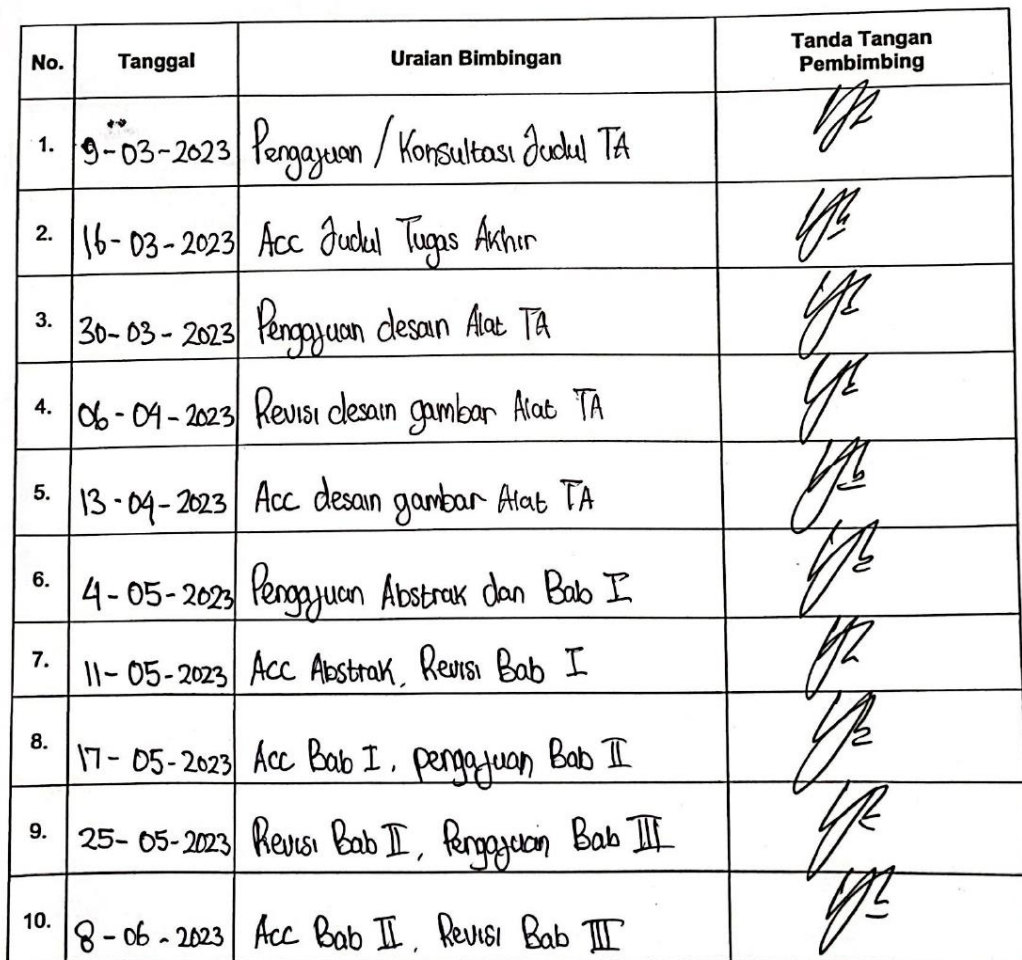 No. Tanggal Uraian Bimbingan Tanda Tangan
Pembimbing
1. 9-03-2023 Pengajuan / Konsultasi Judul TA
2. 16-03-2023 Acc Judul Tugas Akhir
3. 30-03-2023 Pengajuan desain Alat TA
4. 06-04-2023 Revisi desain gambar Alat TA
5. 13-04-2023 Acc desain gambar Alat TA
6. 4-05-2023 Pengajuan Abstrak dan Bab I
7. 11-05-2023 Acc Abstrak, Revisi Bab I
8. 17-05-2023 Acc Bab I, pengajuan Bab II
9. 25-05-2023 Revisi Bab II, Pengajuan Bab III
10. 8-06-2023 Acc Bab II, Revisi Bab III